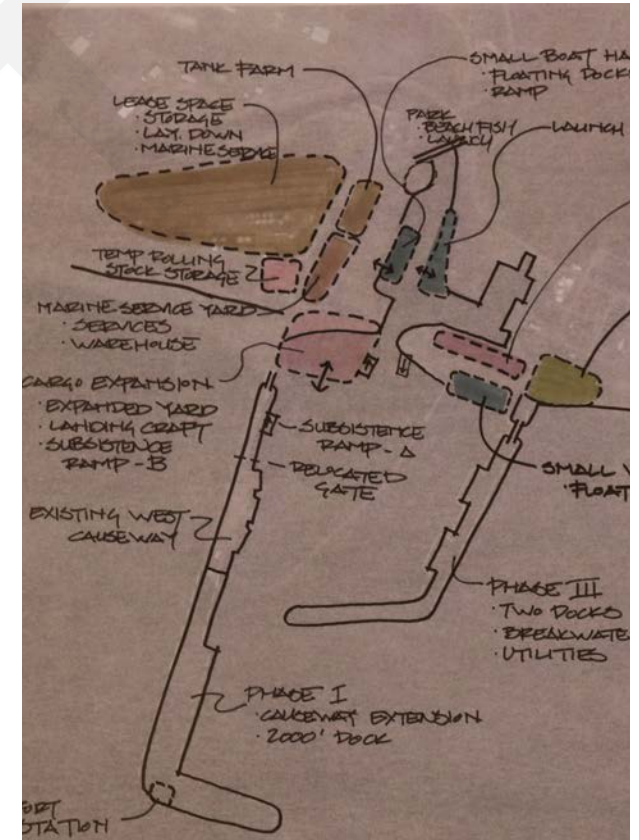 TANK FARM
SMALL BOAT HA
· FLOATING DOCK
· RAMP
LEASE SPACE
· STORAGE
· LAY DOWN
· MARINE SERVICE
PARK
· BEACH FISH
· LAUNCH
LAUNCH
TEMP ROLLING
STOCK STORAGE
MARINE SERVICE YARD
· SERVICES
· WAREHOUSE
CARGO EXPANSION
· EXPANDED YARD
· LANDING CRAFT
· SUBSISTENCE
RAMP - B
SUBSISTENCE
RAMP - A
RELOCATED
GATE
SMALL V
· FLOAT
EXISTING WEST
CAUSEWAY
PHASE III
· TWO DOCKS
· BREAKWATE
· UTILITIES
PHASE I
· CAUSEWAY EXTENSION
· 2000' DOCK
ORT
STATION